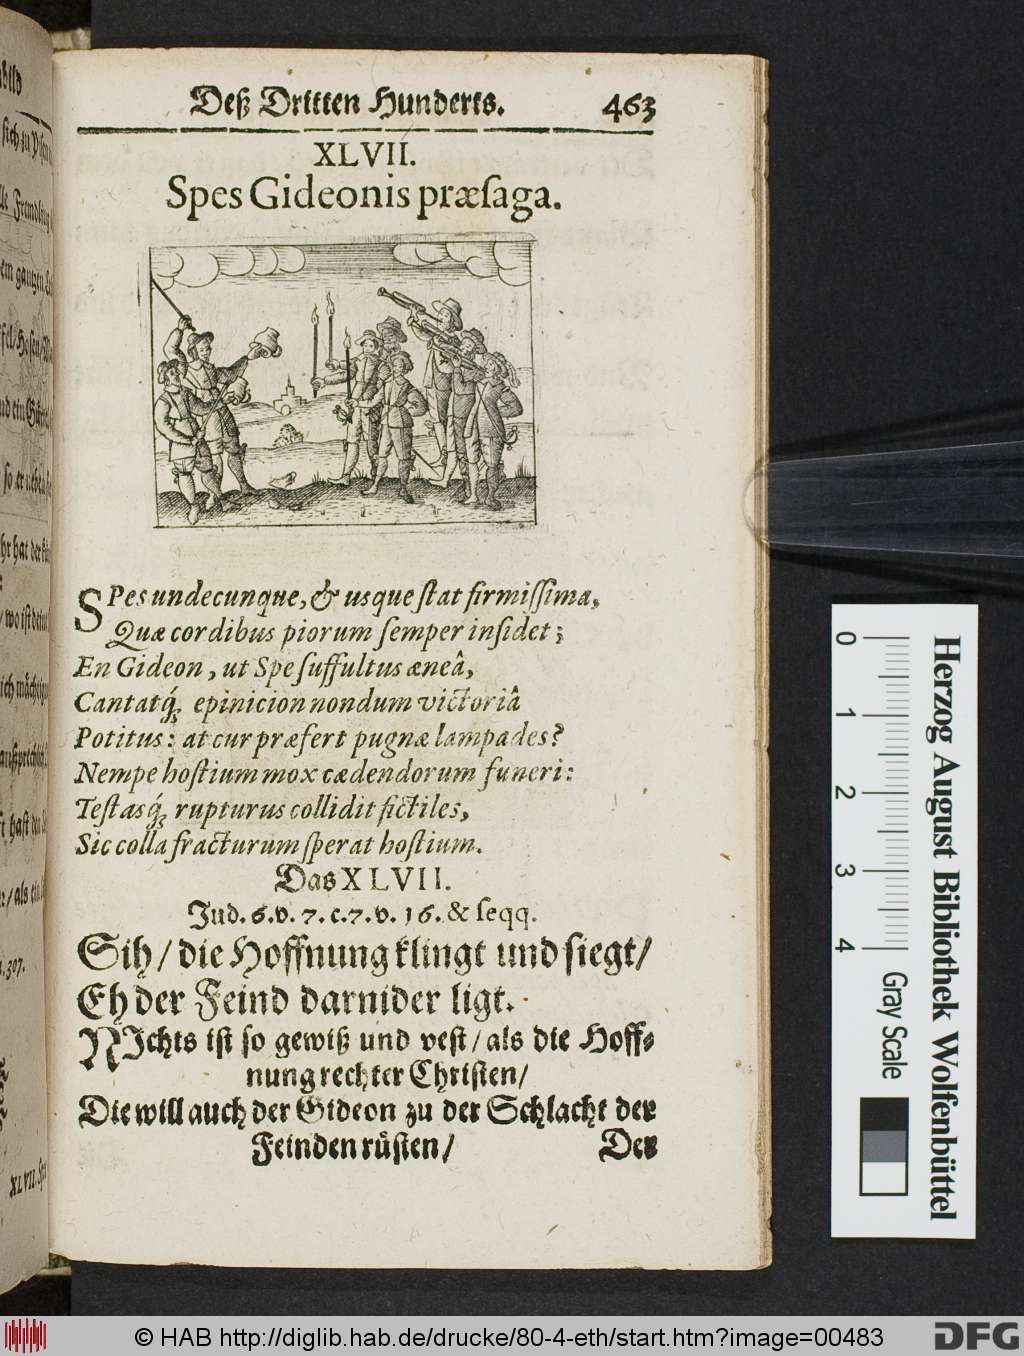 Deß Dritten Hunderts. 463
XLVII.
Spes Gideonis præſaga.
SPes undecunque, & usque ſtat firmiſſima,
Quæ cordibus piorum ſemper inſidet;
En Gideon, ut Spe ſuffultus æneâ,
Cantatq́; epinicion nondum victoriâ
Potitus: at cur præfert pugnæ lampades?
Nempe hoſtium mox cædendorum funeri:
Teſtasq́; rupturus collidit fictiles,
Sic colla fracturum ſperat hoſtium.
Das XLVII.
Jud. 6. v. 7. c. 7. v. 16. & ſeqq.
Sih / die Hoffnung klingt und ſiegt /
Eh der Feind darnider ligt.
NIchts iſt ſo gewiß und veſt / als die Hoff-
nung rechter Chriſten /
Die will auch der Gideon zu der Schlacht der
Feinden rüſten / Der
bild
ſich zu
Fremdling
em gantzen
ſo er
hr hat der
/ wo iſt
ich
t haſt den
/ als ein
307.
XLVII. Spes
0 1 2 3 4
Herzog August Bibliothek Wolfenbüttel
Gray Scale
© HAB http://diglib.hab.de/drucke/80-4-eth/start.htm?image=00483
DFG